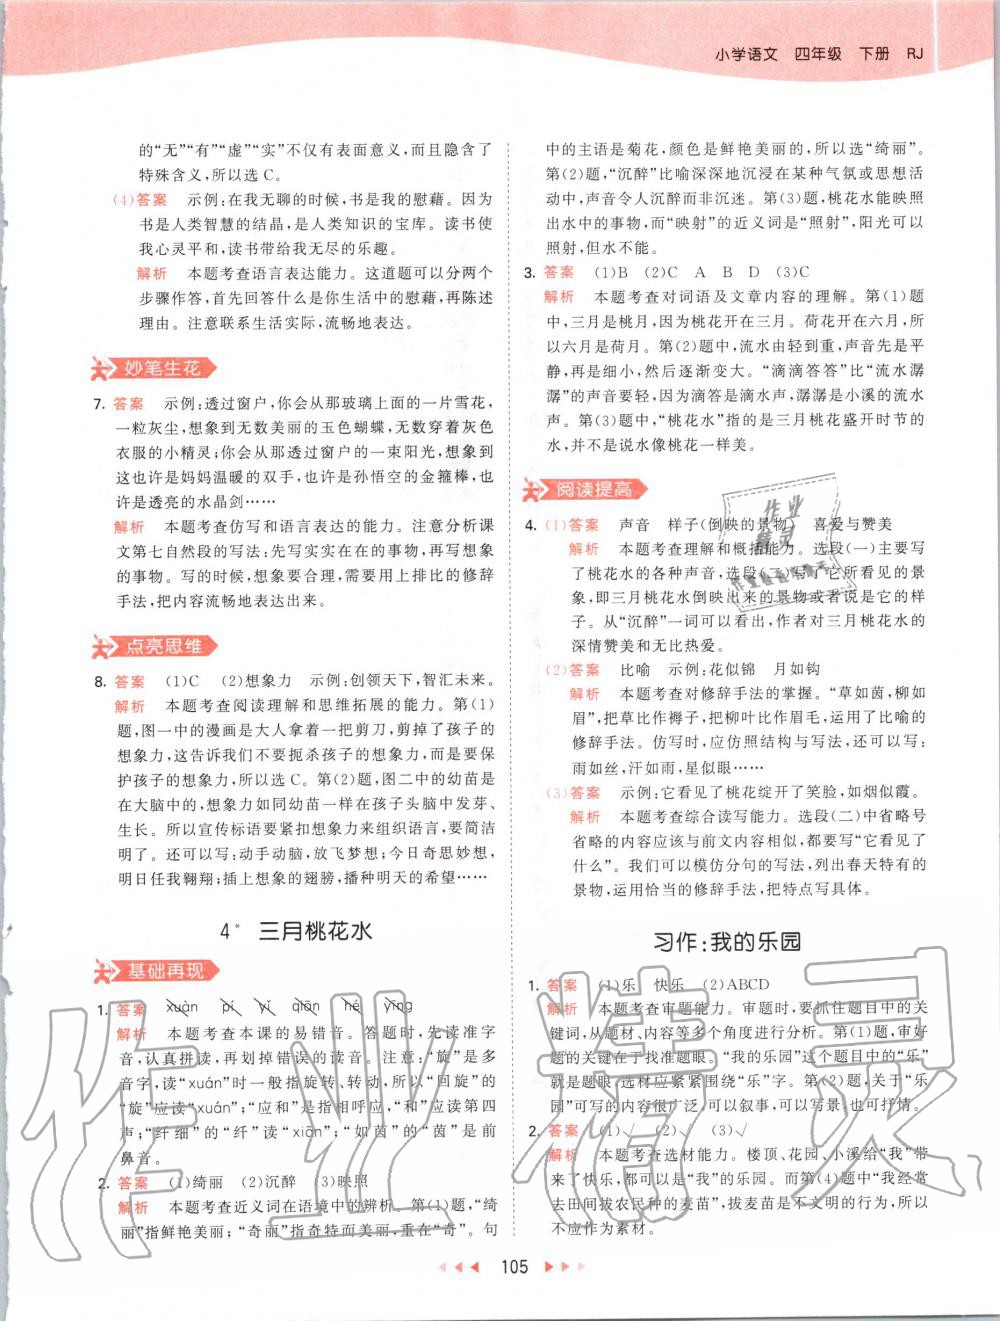 小学语文 四年级 下册 RJ
的“无”“有”“虚”“实”不仅有表面意义,而且隐含了
特殊含义,所以选C。
(4)答案 示例:在我无聊的时候,书是我的慰藉。因为
书是人类智慧的结晶,是人类知识的宝库。读书使
我心灵平和,读书带给我无尽的乐趣。
解析 本题考查语言表达能力。这道题可以分两个
步骤作答,首先回答什么是你生活中的慰藉,再陈述
理由。注意联系生活实际,流畅地表达。
妙笔生花
7. 答案 示例:透过窗户,你会从那玻璃上面的一片雪花,
一粒灰尘,想象到无数美丽的玉色蝴蝶,无数穿着灰色
衣服的小精灵;你会从那透过窗户的一束阳光,想象到
这也许是妈妈温暖的双手,也许是孙悟空的金箍棒,也
许是透亮的水晶剑……
解析 本题考查仿写和语言表达的能力。注意分析课
文第七自然段的写法:先写实实在在的事物,再写想象
的事物。写的时候,想象要合理,需要用上排比的修辞
手法,把内容流畅地表达出来。
点亮思维
8. 答案 (1)C (2)想象力 示例:创领天下,智汇未来。
解析 本题考查阅读理解和思维拓展的能力。第(1)
题,图一中的漫画是大人拿着一把剪刀,剪掉了孩子的
想象力,这告诉我们不要扼杀孩子的想象力,而是要保
护孩子的想象力,所以选C。第(2)题,图二中的幼苗是
在大脑中的,想象力如同幼苗一样在孩子头脑中发芽、
生长。所以宣传标语要紧扣想象力来组织语言,要简洁
明了。还可以写:动手动脑,放飞梦想;今日奇思妙想,
明日任我翱翔;插上想象的翅膀,播种明天的希望……
4* 三月桃花水
基础再现
1. 答案 xuàn pí yī qiān hé yīng
解析 本题考查本课的易错音。答题时,先读准字
音,认真拼读,再划掉错误的读音。注意:“旋”是多
音字,读“xuán”时一般指旋转、转动,所以“回旋”的
“旋”应读“xuán”;“应和”是指相呼应,“和”应读第四
声;“纤细”的“纤”读“xiān”;“如茵”的“茵”是前
鼻音。
2. 答案 (1)绮丽 (2)沉醉 (3)映照
解析 本题考查近义词在语境中的辨析。第(1)题,“绮
丽”指鲜艳美丽;“奇丽”指奇特而美丽,重在“奇”。句
中的主语是菊花,颜色是鲜艳美丽的,所以选“绮丽”。
第(2)题,“沉醉”比喻深深地沉浸在某种气氛或思想活
动中,声音令人沉醉而非沉迷。第(3)题,桃花水能映照
出水中的事物,而“映射”的近义词是“照射”,阳光可以
照射,但水不能。
3. 答案 (1)B (2)C A B D (3)C
解析 本题考查对词语及文章内容的理解。第(1)题
中,三月是桃月,因为桃花开在三月。荷花开在六月,所
以六月是荷月。第(2)题中,流水由轻到重,声音先是平
静,再是细小,然后逐渐变大。“滴滴答答”比“流水潺
潺”的声音要轻,因为滴答是滴水声,潺潺是小溪的流水
声。第(3)题中,“桃花水”指的是三月桃花盛开时节的
水,并不是说水像桃花一样美。
阅读提高
4. (1)答案 声音 样子(倒映的景物) 喜爱与赞美
解析 本题考查理解和概括能力。选段(一)主要写
了桃花水的各种声音,选段(二)写了它所看见的景
象,即三月桃花水倒映出来的景物或者说是它的样
子。从“沉醉”一词可以看出,作者对三月桃花水的
深情赞美和无比热爱。
(2)答案 比喻 示例:花似锦 月如钩
解析 本题考查对修辞手法的掌握。“草如茵,柳如
眉”,把草比作褥子,把柳叶比作眉毛,运用了比喻的
修辞手法。仿写时,应仿照结构与写法,还可以写:
雨如丝,汗如雨,星似眼……
(3)答案 示例:它看见了桃花绽开了笑脸,如烟似霞。
解析 本题考查综合读写能力。选段(二)中省略号
省略的内容应该与前文内容相似,都要写“它看见了
什么”。我们可以模仿分句的写法,列出春天特有的
景物,运用恰当的修辞手法,把特点写具体。
习作:我的乐园
1. 答案 (1)乐 快乐 (2)ABCD
解析 本题考查审题能力。审题时,要抓住题目中的关
键词,从题材、内容等多个角度进行分析。第(1)题,解
题的关键在于找准题眼。“我的乐园”这个题目中的“乐”
就是题眼,选材应紧紧围绕“乐”字。第(2)题,关于“乐
园”可写的内容很广泛,可以叙事,可以写景,也可抒情。
2. 答案 (1)√ (2)√ (3)√
解析 本题考查选材能力。楼顶、花园、小溪给“我”带
来了快乐,它们都可以是“我”的乐园。而第(4)题“我经常
去田间拔农民种的麦苗”,拔麦苗是不文明的行为,所以
不应作为素材。
105
作业精灵